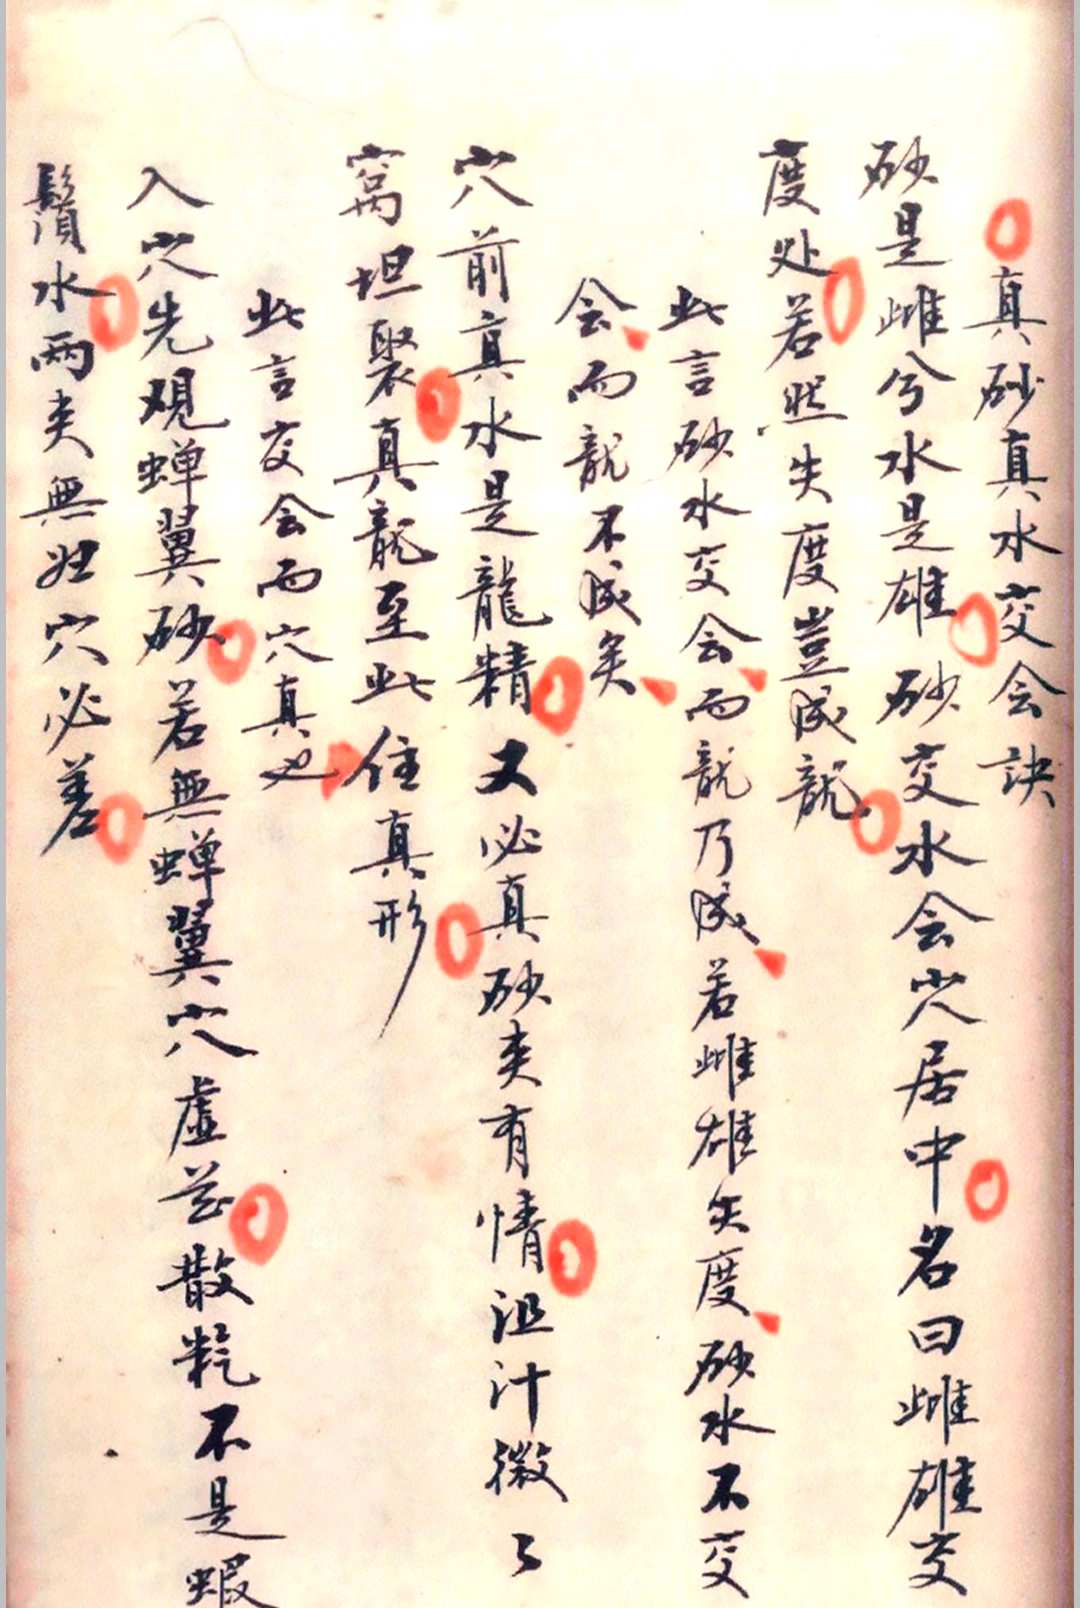 真砂真水交会訣
砂是雌兮水是雄砂交水会穴居中名曰雌雄交
度处若然失度豈成龍
此言砂水交会而龍乃成若雌雄失度砂水不交
会而龍不成矣
穴前真水是龍精又必真砂夹有情沮汁微々
窝坦聚真龍至此住真形
此言交会而穴真也
入穴先观蝉翼砂若無蝉翼穴虚花散乾不是蝦
鬚水兩夹無妣穴必差